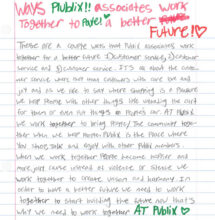 WAYS Publix!! associates work
together to Patel a better
Future!!
These are a couple ways that Publix associates work
together for a better future 1) customer service, 2) customer
service and 3) customer service. IT'S all about the customer
service work not that customers with care love and
joy and as we like to say where shopping is a Pleasure
we help People with other things like wanding the cart
for them or even put things in Publix car. AT Publix
we work together to bring Peace/The community together
when we help People Publix is the Place where
you shop, talk and enjoy with other Publix members
when we work together People become happier and
more peace cause instead of violence or silence we
work together to create vision and harmony. In
order to have a better future we need to work
together to start building the future now that's
why we need to work together AT Publix